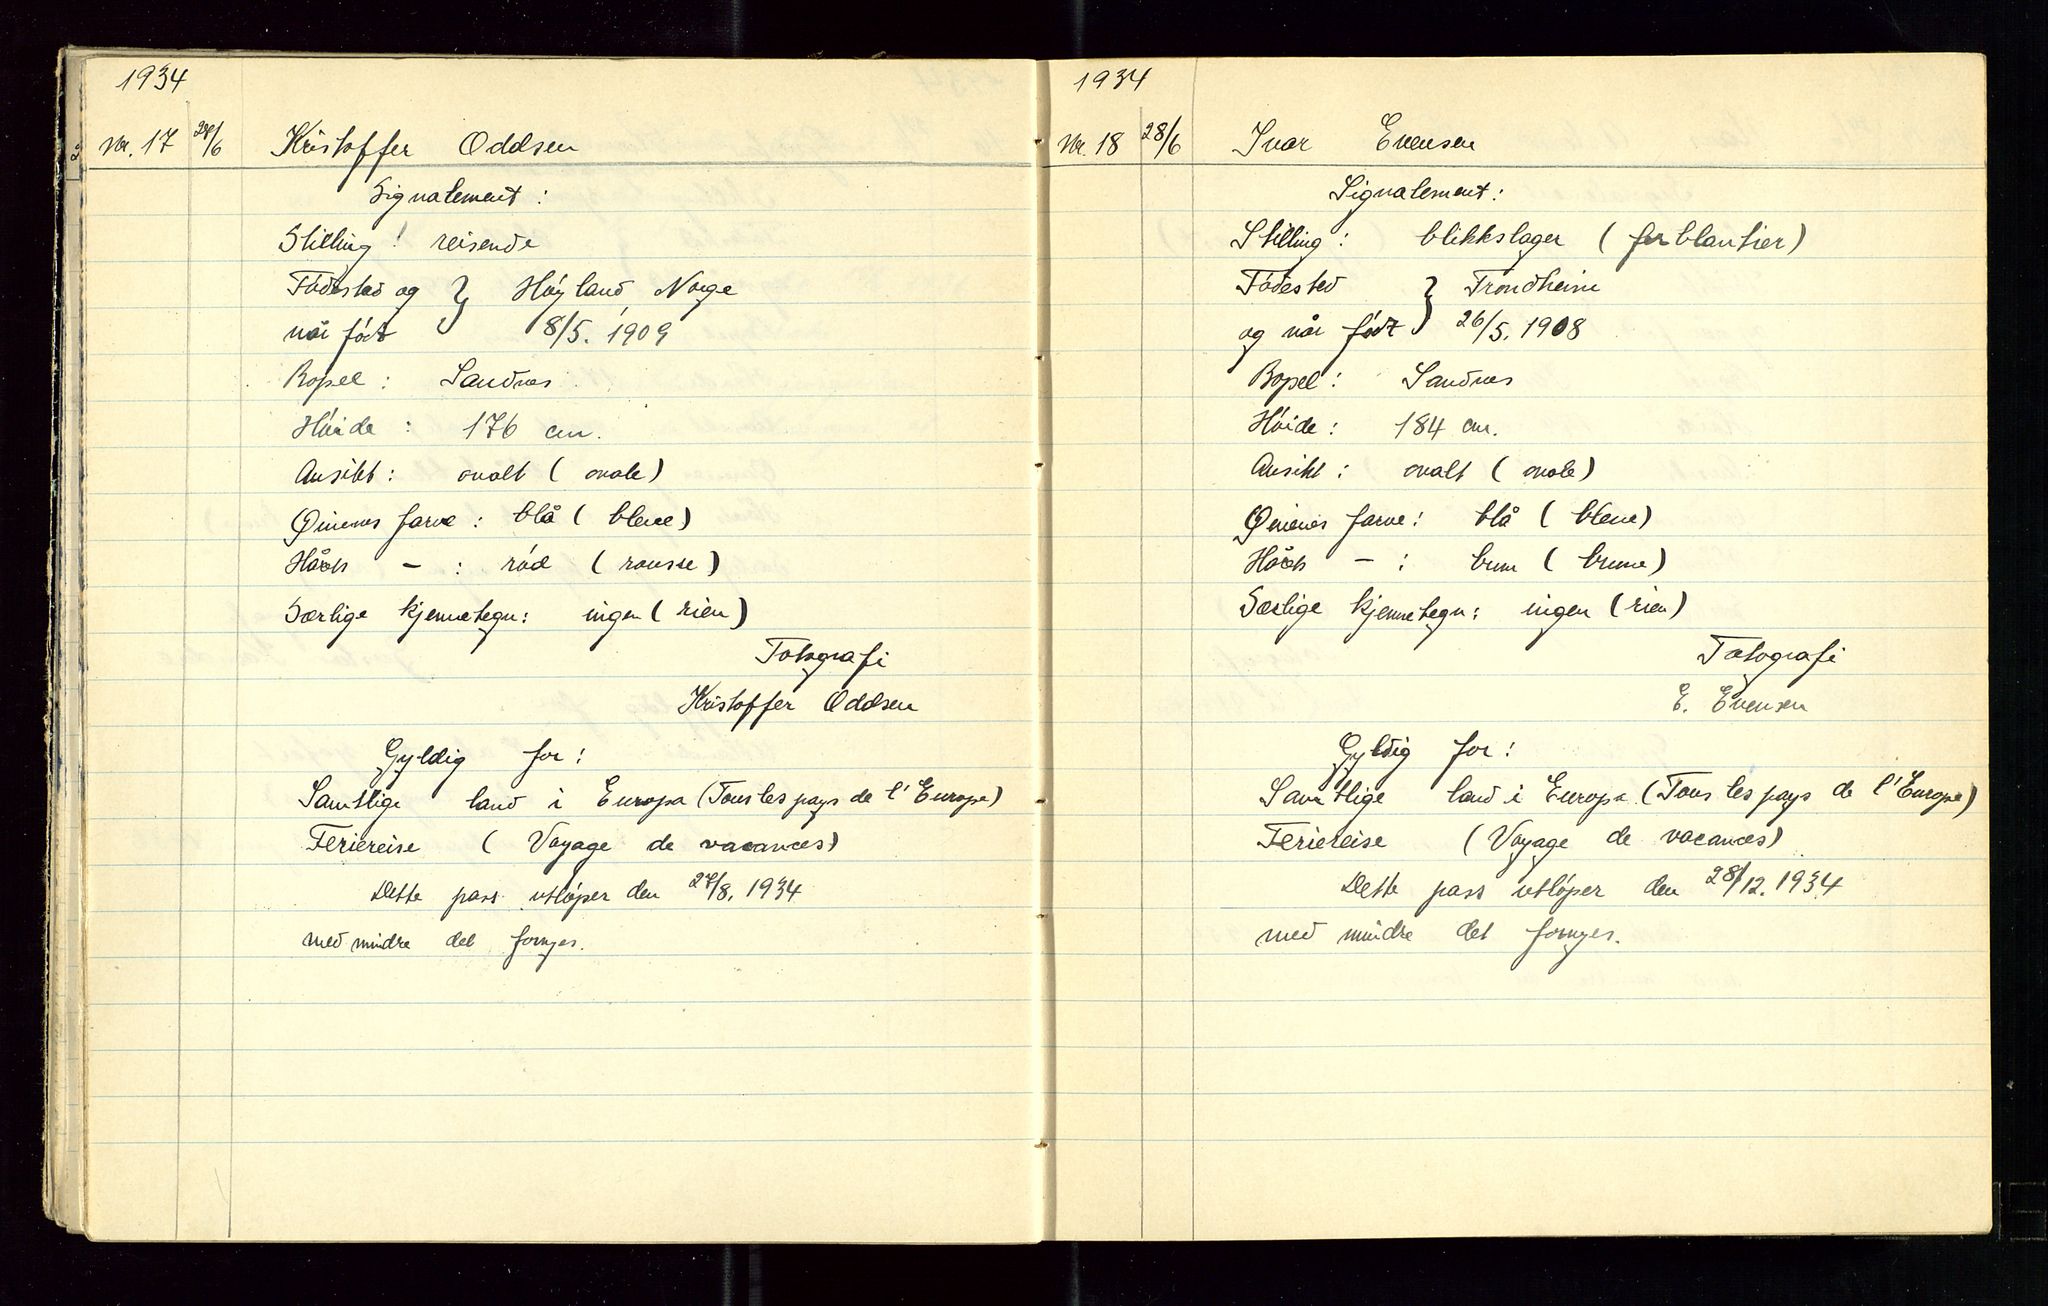 1934
Nr. 17 28/6 Kristoffer Oddsen
Signalement :
Stilling : reisende
Fødested og } Høyland Norge
når født 8/5. 1909
Bopel : Sandnes
Høide : 176 cm.
Ansikt : ovalt ( ovale )
Øinenes farve : blå ( bleue )
Hårets – : rød ( rousse )
Særlige kjennetegn: ingen ( rien )
Fotografi
Kristoffer Oddsen
Gyldig for :
Samtlige land i Europa ( Tous les pays de l'Europe )
Feriereise ( Voyage de vacances )
Dette pass utløper den 28/8. 1934
med mindre det fornyes.
1934
Nr. 18 28/6 Ivar Evensen
Signalement :
Stilling : blikkslager ( ferblantier )
Fødested } Trondheim
og når født 26/5. 1908
Bopel : Sandnes
Høide : 184 cm.
Ansikt : ovalt ( ovale )
Øinenes farve : blå ( bleue )
Hårets – : brun ( brune )
Særlige kjennetegn : ingen ( rien )
Fotografi
E. Evensen
Gyldig for :
Samtlige land i Europa ( Tous les pays de l'Europe )
Feriereise ( Voyage de vacances )
Dette pass utløper den 28/12. 1934
med mindre det fornyes.